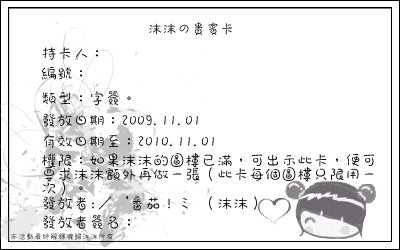 沫沫の貴賓卡
持卡人：
編號：
類型：字簽。
發放日期：2009.11.01
有效日期至：2010.11.01
權限：如果沫沫的圖樓已滿，可出示此卡，便可
要求沫沫額外再做一張（此卡每個圖樓只限用一
次）。
發放者：／‵番茄！ミ （沫沫）
發放者簽名：
本活動最終解釋權歸沫沫所有